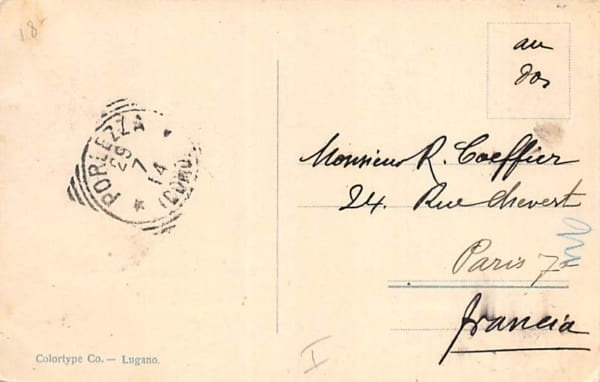 18
au
dos
PORLEZZA
(COMO)
29 7 14
Monsieur R. Coeffier
24. Rue Chevert
Paris 7e
Francia
I
Colortype Co. — Lugano.